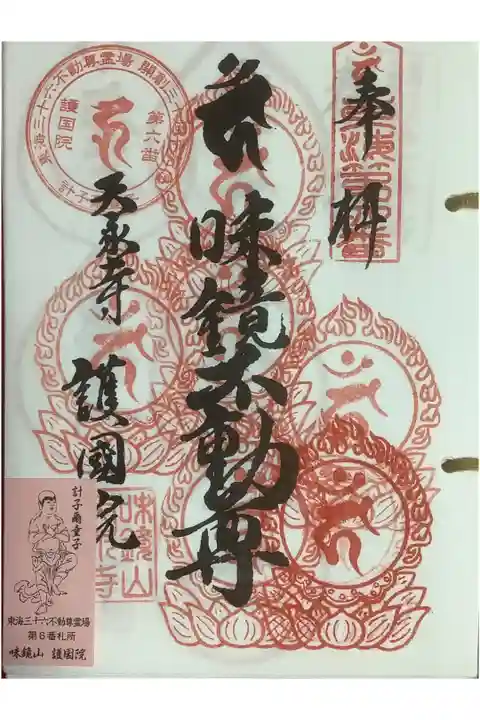 奉拝
味鏡不動尊
天永寺
護國院
東海三十六不動尊霊場 開創三十
護国院
第六番
計子
味鏡山
寺
計子爾童子
東海三十六不動尊霊場
第6番札所
味鏡山 護国院